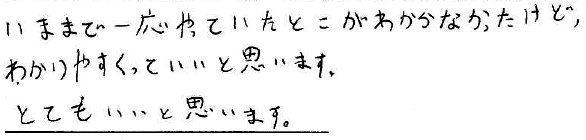 いままで一応やっていたとこがわかかなかったけど，
わかりやすくっていいと思います。
とてもいいと思います。